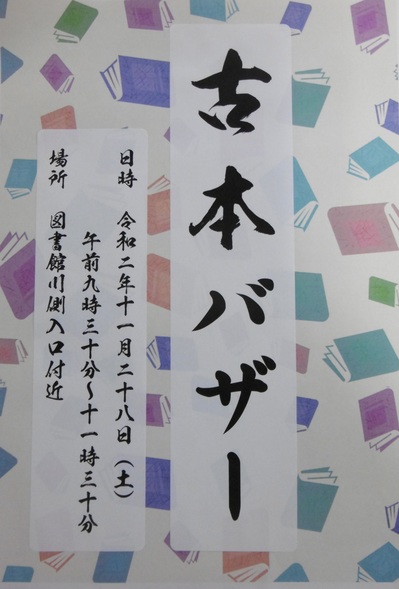 古本バザー
日時 令和二年十一月二十八日（土）
午前九時三十分～十一時三十分
場所 図書館川側入口付近